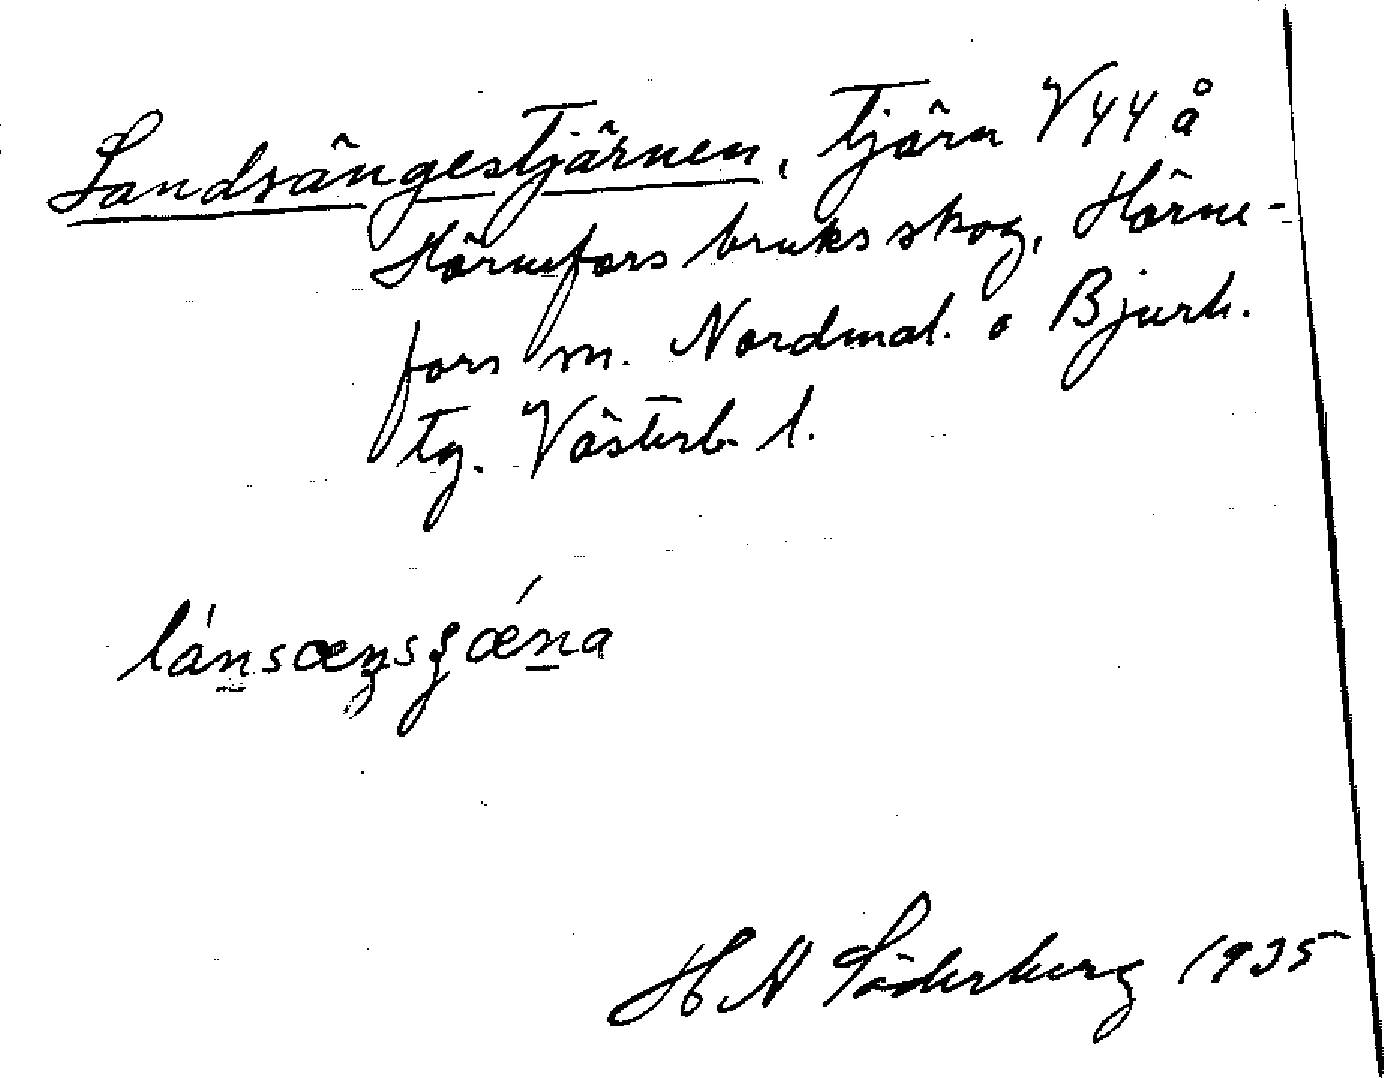 Landsängestjärnen, tjärn V 44 å
Hörnefors bruks skog, Hörne-
fors sn. Nordmal. o Bjurh.
tg. Västerb. l.
H A Söderberg 1935